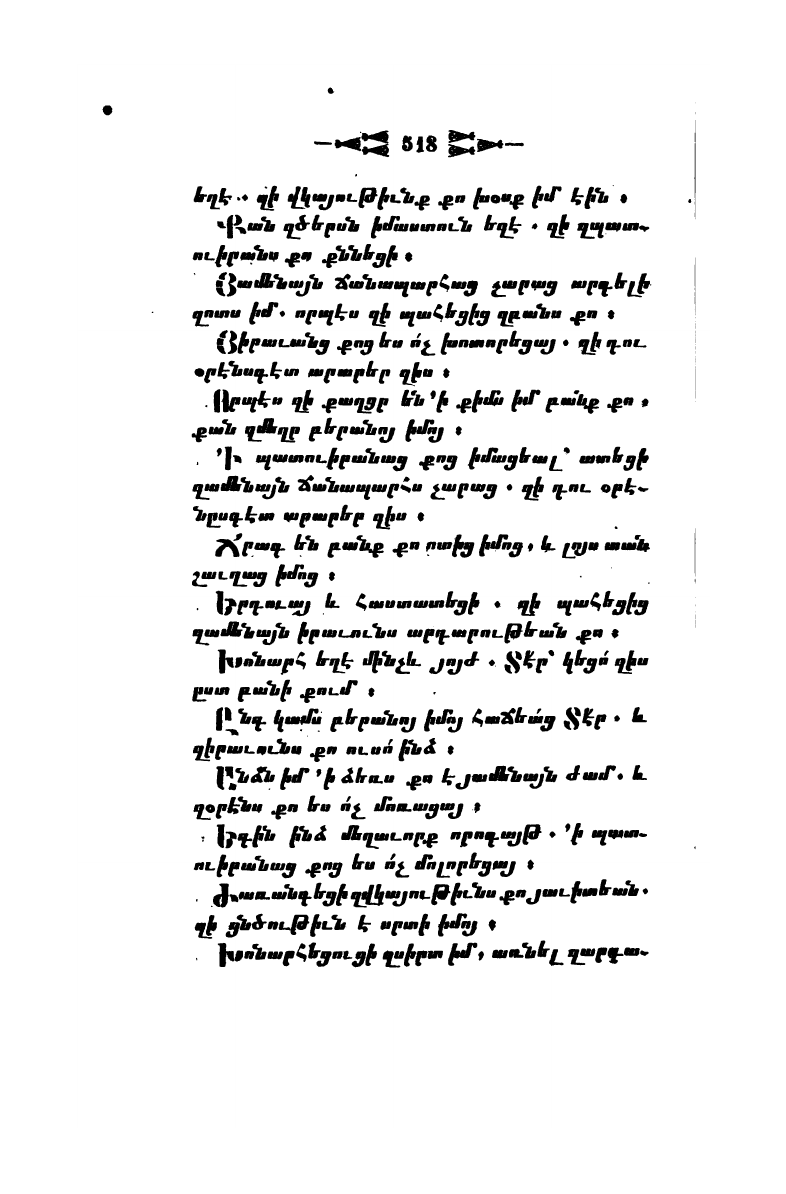 518
եղէ ․․ զի վկայութիւնք քո խօսք իմ էին ։
Քան զծերսն իմաստուն եղէ ․ զի զպատ-
ուիրանս քո քննեցի ։
Յամենայն ճանապարհաց չարաց արգելի
զոտս իմ․ որպէս զի պահեցից զբանս քո ։
Յիրաւանց քոց ես ո՛չ խոտորեցայ ․ զի դու
օրէնսգէտ արարեր զիս ։
Որպէս զի քաղցր են ՚ի քիմս իմ բանք քո ,
քան զմեղր բերանոյ իմոյ ։
՚Ի պատուիրանաց քոց իմացեալ՝ ատեցի
զամենայն ճանապարհս չարաց ․ զի դու օրէ-
նըսգէտ արարեր զիս ։
Ճրագ են բանք քո ոտից իմոց, և լոյս տան
շաւղաց իմոց ։
Երդուայ և հաստատեցի ․ զի պահեցից
զամենայն իրաւունս արդարութեան քո ։
Խոնարհ եղէ մինչև յոյժ ․ Տէր՝ կեցո՛ զիս
ըստ բանի քում ։
Ընդ կամս բերանոյ իմոյ հաճեա՛ց Տէր ․ և
զիրաւունս քո ուսո՛ ինձ ։
Անձն իմ ՚ի ձեռս քո է յամենայն ժամ․ և
զօրէնս քո ես ո՛չ մոռացայ ։
Եդին ինձ մեղաւորք որոգայթ ․ ՚ի պատ-
ուիրանաց քոց ես ո՛չ մոլորեցայ ։
Ժառանգեցի զվկայութիւնս քո յաւիտեան․
զի ցնծութիւն է սրտի իմոյ ։
Խոնարհեցուցի զսիրտ իմ, առնել զարդա-